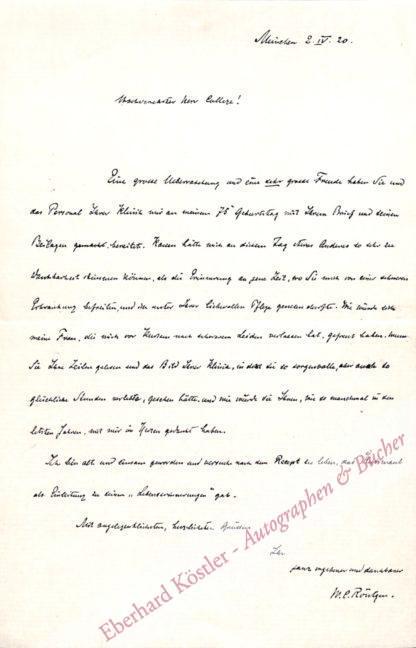 München 2. IV. 20.
Hochverehrter Herr College!
Eine grosse Ueberraschung und eine sehr grosse Freude haben Sie und
das Personal Ihrer Klinik mir an meinem 75 Geburtstag mit Ihrem Brief und seinen
Beilagen gemacht. Kaum hätte mich an diesem Tag etwas Anderes so sehr zu
Dankbarkeit stimmen können, als die Erinnerung an jene Zeit, wo Sie mich von einer schweren
Erkrankung befreiten, und ich unter Ihrer liebevollen Pflege genesen durfte. Wie würde sich
meine Frau, die mich vor Kurzem nach schwerem Leiden verlassen hat, gefreut haben, wenn
Sie Ihre Zeilen gelesen und das Bild Ihrer Klinik, in der sie so sorgenvolle, aber auch so
glückliche Stunden verlebte, gesehen hätte, und wie würde sie Ihnen, wie so manchmal in den
letzten Jahren, mit mir im Herzen gedankt haben.
Ich bin alt und einsam geworden und versuche nach dem Rezept zu leben, das
als Einleitung zu seinen "Lebenserinnerungen" gab.
Mit angelegentlichsten, herzlichsten Grüssen
Ihr
ganz ergebener und dankbarer
W. C. Röntgen.
Eberhard Köstler - Autographen & Bücher